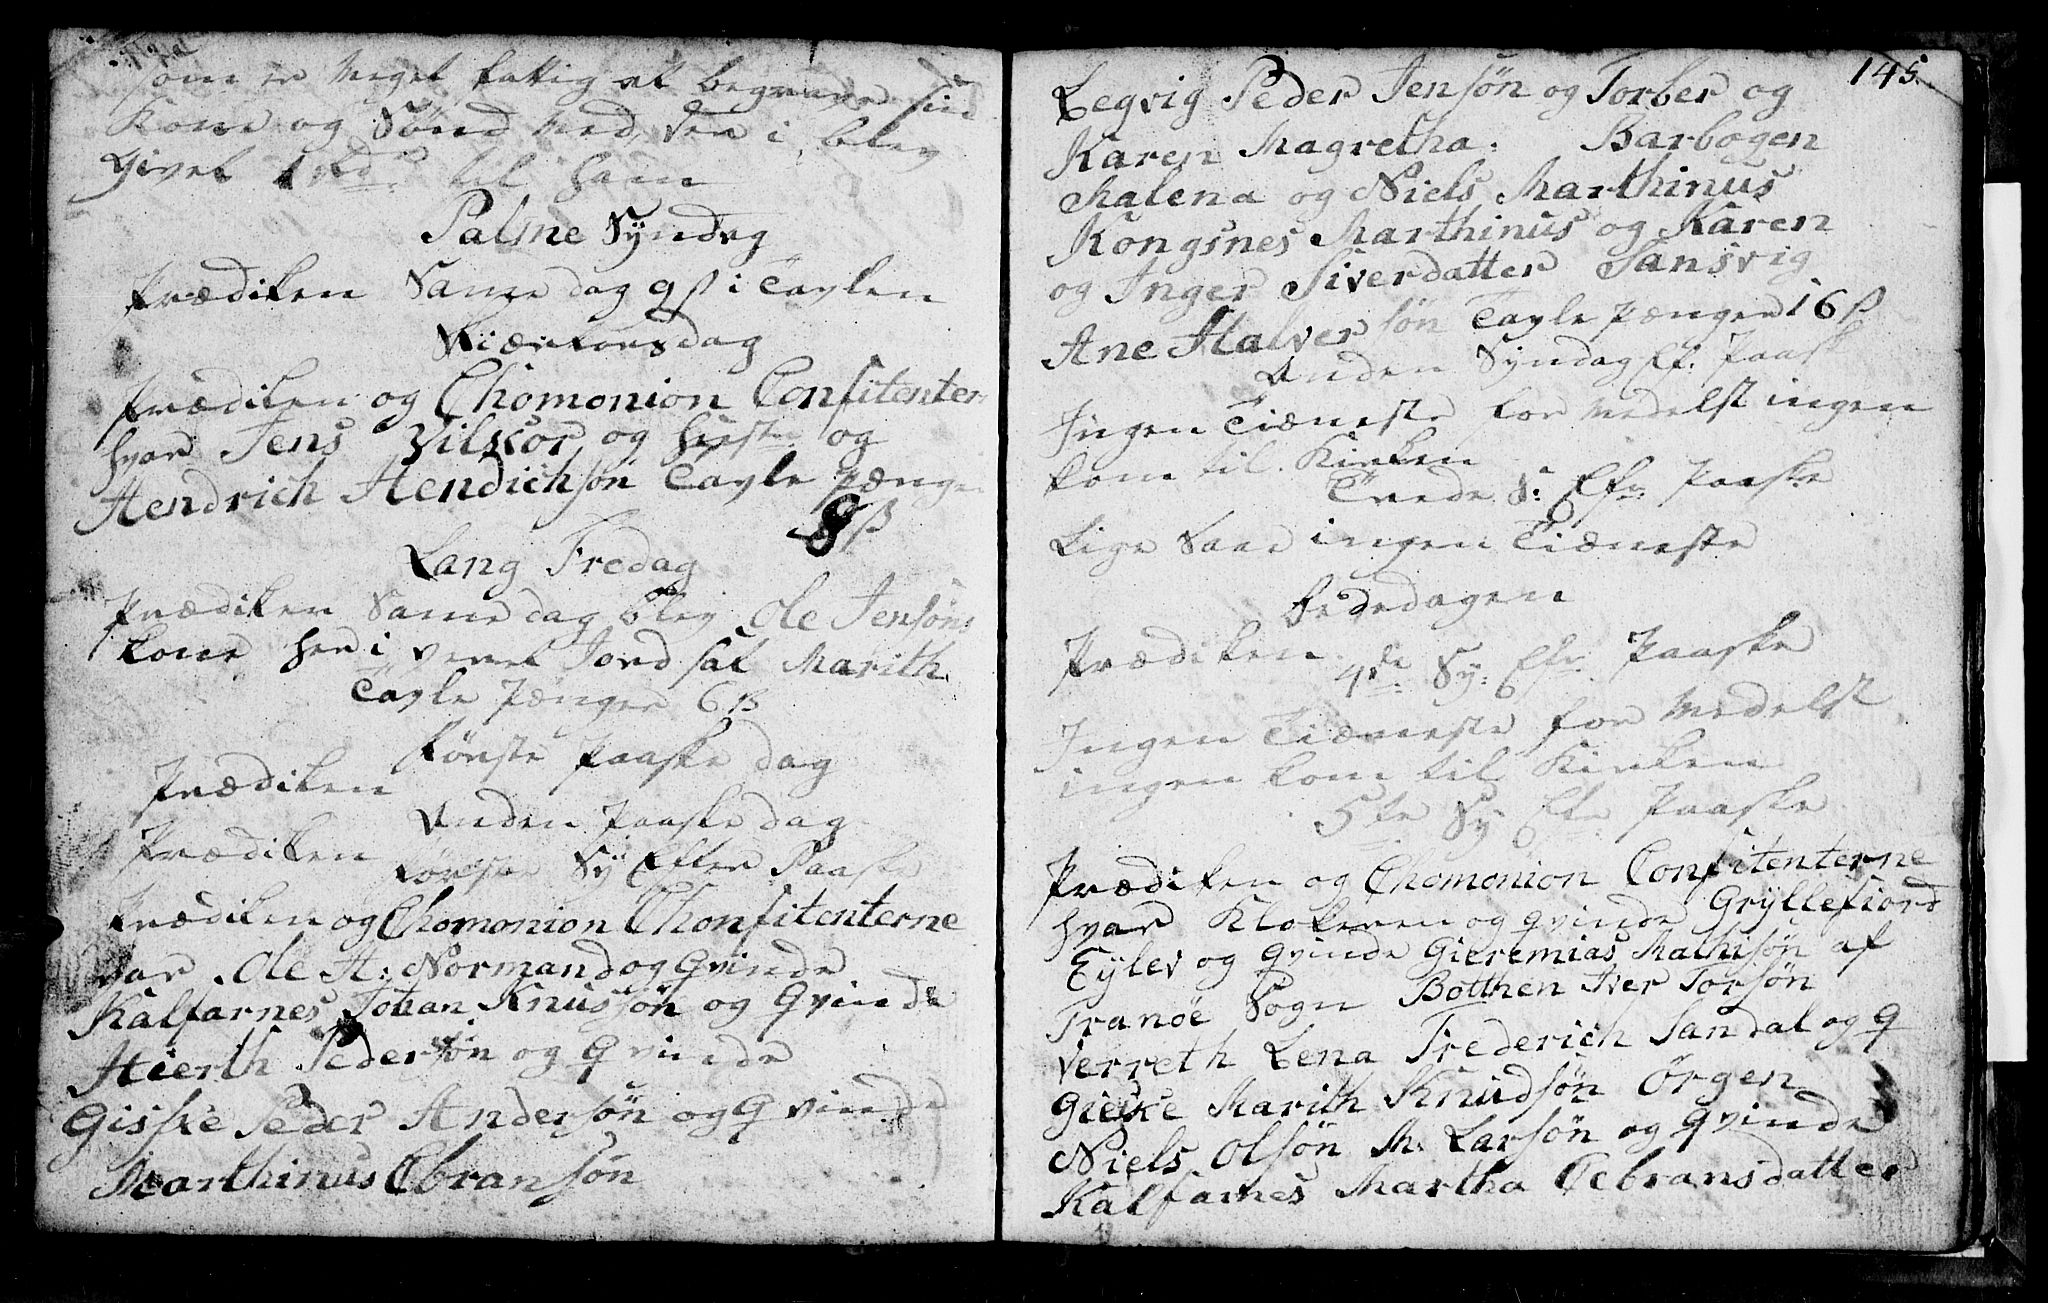 som er Meget fattig at begrave sin
Kone og Sønd med, der i blev
Givet 1 rd til ham
Palme Syndag
Prædiken Same dag 9 ß i Tavlen
Skiærtorsdag
Prædiken og Chomonion Confitenter
hvar Jens Zilskor og og
Hendrich Hendichsøn Tavle Pænge
8 ß
Lang Fredag
Prædiken Same dag blev Ole Jensøns
kone her i veret Jord sat Marith
Tavle Pænger 6 ß
Første Paaske dag
Prædiken
Anden Paaske dag
Prædiken
Første Sy Efter Paaske
Prædiken og Chomonion Chonfitenterne
var Ole H: Normand og Qvinde
Kalfarnes Johan Knussøn og Qvinde
Hierth Pedersøn og Qvinde
Gisske Peder Andersøn og Qvinde
Marthinus Ebransøn
145.
Legvig Peder Jensøn og Torber og
Karen Magretha. Barbogen
Malena og Niels Marthinus
Kongsnes Marthinus og Karen
og Inger Siverdatter Sansvig
Ane Halversøn Tavle Pænger 16 ß
Anden Syndag Ef. Paask
Ingen Tiæneste for medelst ingen
kom til Kirken
Trede S: Efr Paaske
Lige Saae ingen Tiæneste
Bededagen
Prædiken
4de Sy: Efr Paaske
Ingen Tiæneste for Medelst
ingen kom til Kirken
5te Sy Efr Paaske
Prædiken og Chomonion Confitenterne
hvar Klokeren og qvinde Gryllefiord
Eylev og qvinde Gieremias Mathisøn af
Tranøe Sogn Botthen Iver Torsøn
Verreth Lena Frederich Sandal og Q
Gieske Marith Knudsøn Ørgen
Niels Olsøn M. Larsøn og Qvinde
Kalfarnes Martha Eebransdatter